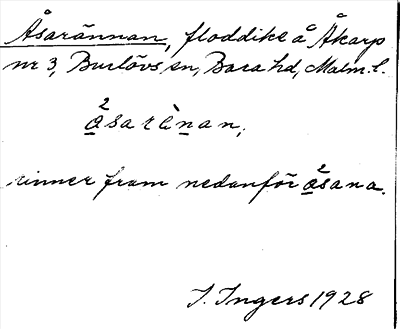 Åsarännan, floddike å Åkarp
nr 3, Burlövs sn, Bara hd, Malm. l.
2
åsarènan,
rinner fram nedanför åsana.
I. Ingers 1928